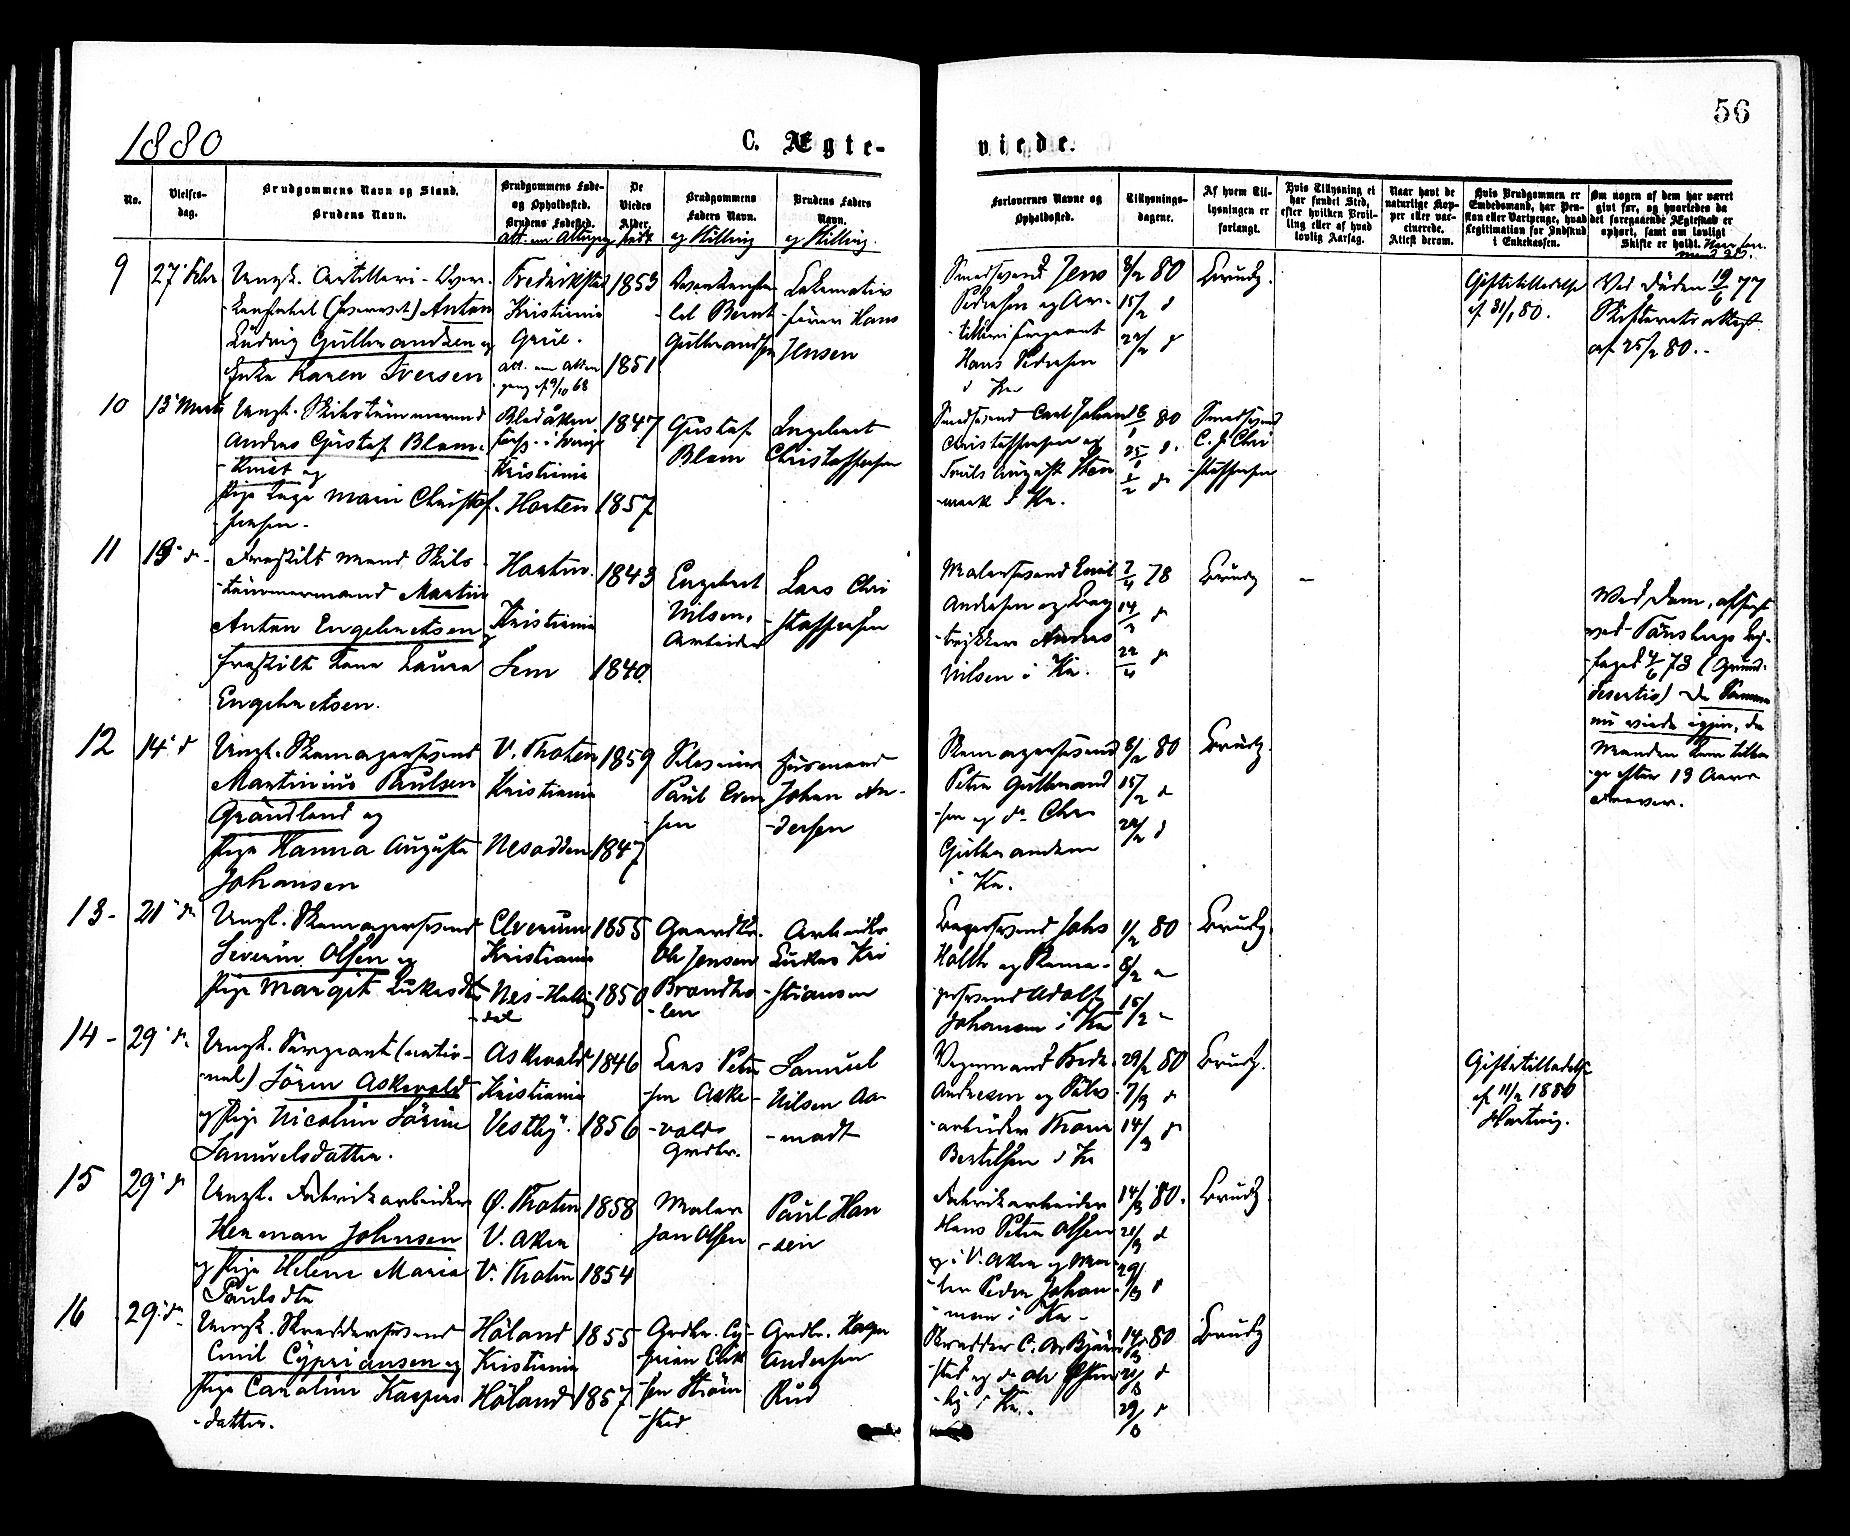 56
1880
C. Ægte-
viede.
No.
Vielses-
dag.
Brudgommens Navn og Stand.
Brudens Navn.
Brudgommens Føde-
og Opholdssted.
Brudens Fødested.
De
Viedes
Alder.
Brudgommens
Faders Navn.
og Stilling
Brudens Faders
Navn.
og Stilling.
Forlovernes Navne og
Opholdssted.
Tillysnings-
dagene.
Af hvem Til-
lysningen er
forlangt.
Hvis Tillysning ei
har fundet Sted,
efter hvilken Bevil-
ling eller af hvad
lovlig Aarsag.
Naar havt de
naturlige Kop-
per eller vac-
cinerede.
Attest derom.
Hvis Brudgommen er
Embedsmand, har Pen-
sion eller Vartpenge, hvad
Legitimation for Indskud
i Enkekassen.
Om nogen af dem har været
gift før, og hvorledes da
det foregaaende Ægteskab er
ophørt, samt om lovligt
Skifte er holdt.
9
27' Febr
Ungk. Artilleri-Over-
(reserve) Anton
Ludvig Gulbrandsen og
Enke Karen Iversen
Fredrikstad
Kristiania
Grue.
1853
1851
Bernt
Gulbrandsen
Lokomotiv
-fører Hans
Jensen
Smedsvend Jens
Pedersen og Ar-
-tilleri sergeant
Hans Pedersen
i Kr
8/2 80
15/2 d
22/2 d
Brudg.
Giftetilladelse
af 31/1 80.
Ved Døden 19/6 77
Skifterets attest
af 25/2 80.-
10
13' Marts
Ungk. Skibstømmermand
Andres Gustaf Blom-
-kvist og
Pige Inga Marie Christof-
fersen.
i Sverige
Kristiania
Horten
1847
1857
Gustaf
Blom
Ingebret
Christoffersen
Smedsvend Carl Johan
Christoffersen og
Truls August Sten
-mark i Kr.
18/1 80
25/1 d.
1/2 d
Smedsvend
C. J. Chri
-stoffersen
11
13' d-
Fraskilt Mand Skibs-
-tømmermand Martin
Anton Engebretsen og
fraskilt Kone Laura
Engebretsen.
Horten.
Kristiania
Sem
1843
1840.
Engebret
Nilsen,
Arbeider
Lars Chri
-stoffersen
Malersvend Emil
Andersen og Bog
-trykker Andres
Nilsen i Kr.
7/4 78
14/4 d
22/4 d
Brudg
-
Ved Dom, afsagt
ved Tønsbergs By-
-foged 4/6 73 (Grund:
Desertio) De Samme
nu viede igjen, da
Manden kom tilba
-ge efter 13 Aars
Fravær.
12
14' d
Ungk. Skomagersvend
Martinius Paulsen
Grøndland og
Pige Hanna Augusta
Johansen
V. Thoten
Kristiania
Nesodden
1859
1847
Paul Even
-sen
Husmand
Johan An-
-dersen
Skomagersvend
Peter Gulbrand
-sen og do Chr.
Gulbrandsen
i Kr.
8/2 80
15/2 d
22/2 d
Brudg.
13-
21' d
Ungk. Skomagersvend
Severin Olsen og
Pige Margit Lukasdtr
Elverum
Kristiania
Nes-Halling
-dal
1855
1850
Gaardbr.
Ole Jensen
Brandho
-len
Arbeider
Lukas Kri
-stiansen
Bagersvend Johs
Holth og Skoma-
-gersvend Adolf
Johansen i Kr
1/2 80
8/2 -
15/2 -
Brudg.
14-
29' d.
Ungk. Sergeant (natio-
-nal) Søren Askevold
og Pige Nicoline Sørine
Samuelsdatter.
Askevold
Kristiania
Vestby.
1846
1856
Lars Peter
-sen Aske-
-vold
Grdbr.
Samuel
Nilsen Aa-
-modt
Vognmand Fredr.
Andresen og
-arbeider Thore
Bertelsen i Kr
29/2 80
7/3 d
14/3 d
Brudg.
Giftetilladelse
af 11/2 1880
Hartvig.
15
29' d
Ungk. Fabrikarbeider
Herman Johnsen
og Pige Helene Marie
Paulsdtr
Ø. Thoten
V. Aker
V. Thoten
1858
1854
Maler
Jon Olsen
Paul Han
-sen
Fabrikarbeider
Hans Peter Olsen
i V. Aker og Ma-
-ler Peder Johan-
-nesen i Kr.
14/3 80.
21/3 d
29/3 d
Brudg.
16
29' d-
Ungk. Skreddersvend
Emil Cypriansen og
Pige Caroline Kaspers
-datter.
Høland
Kristiania
Høland
1855
1857
Grdbr. Cy-
prian Elik
-sen Strøm
-sted
Grdbr. Kasper
Andersen
Rud
Skredder C. A. Bjørn
-stad og do Ole Østen
-by i Kr.
14/3 80
21/3 d
29/3 d
Brudg